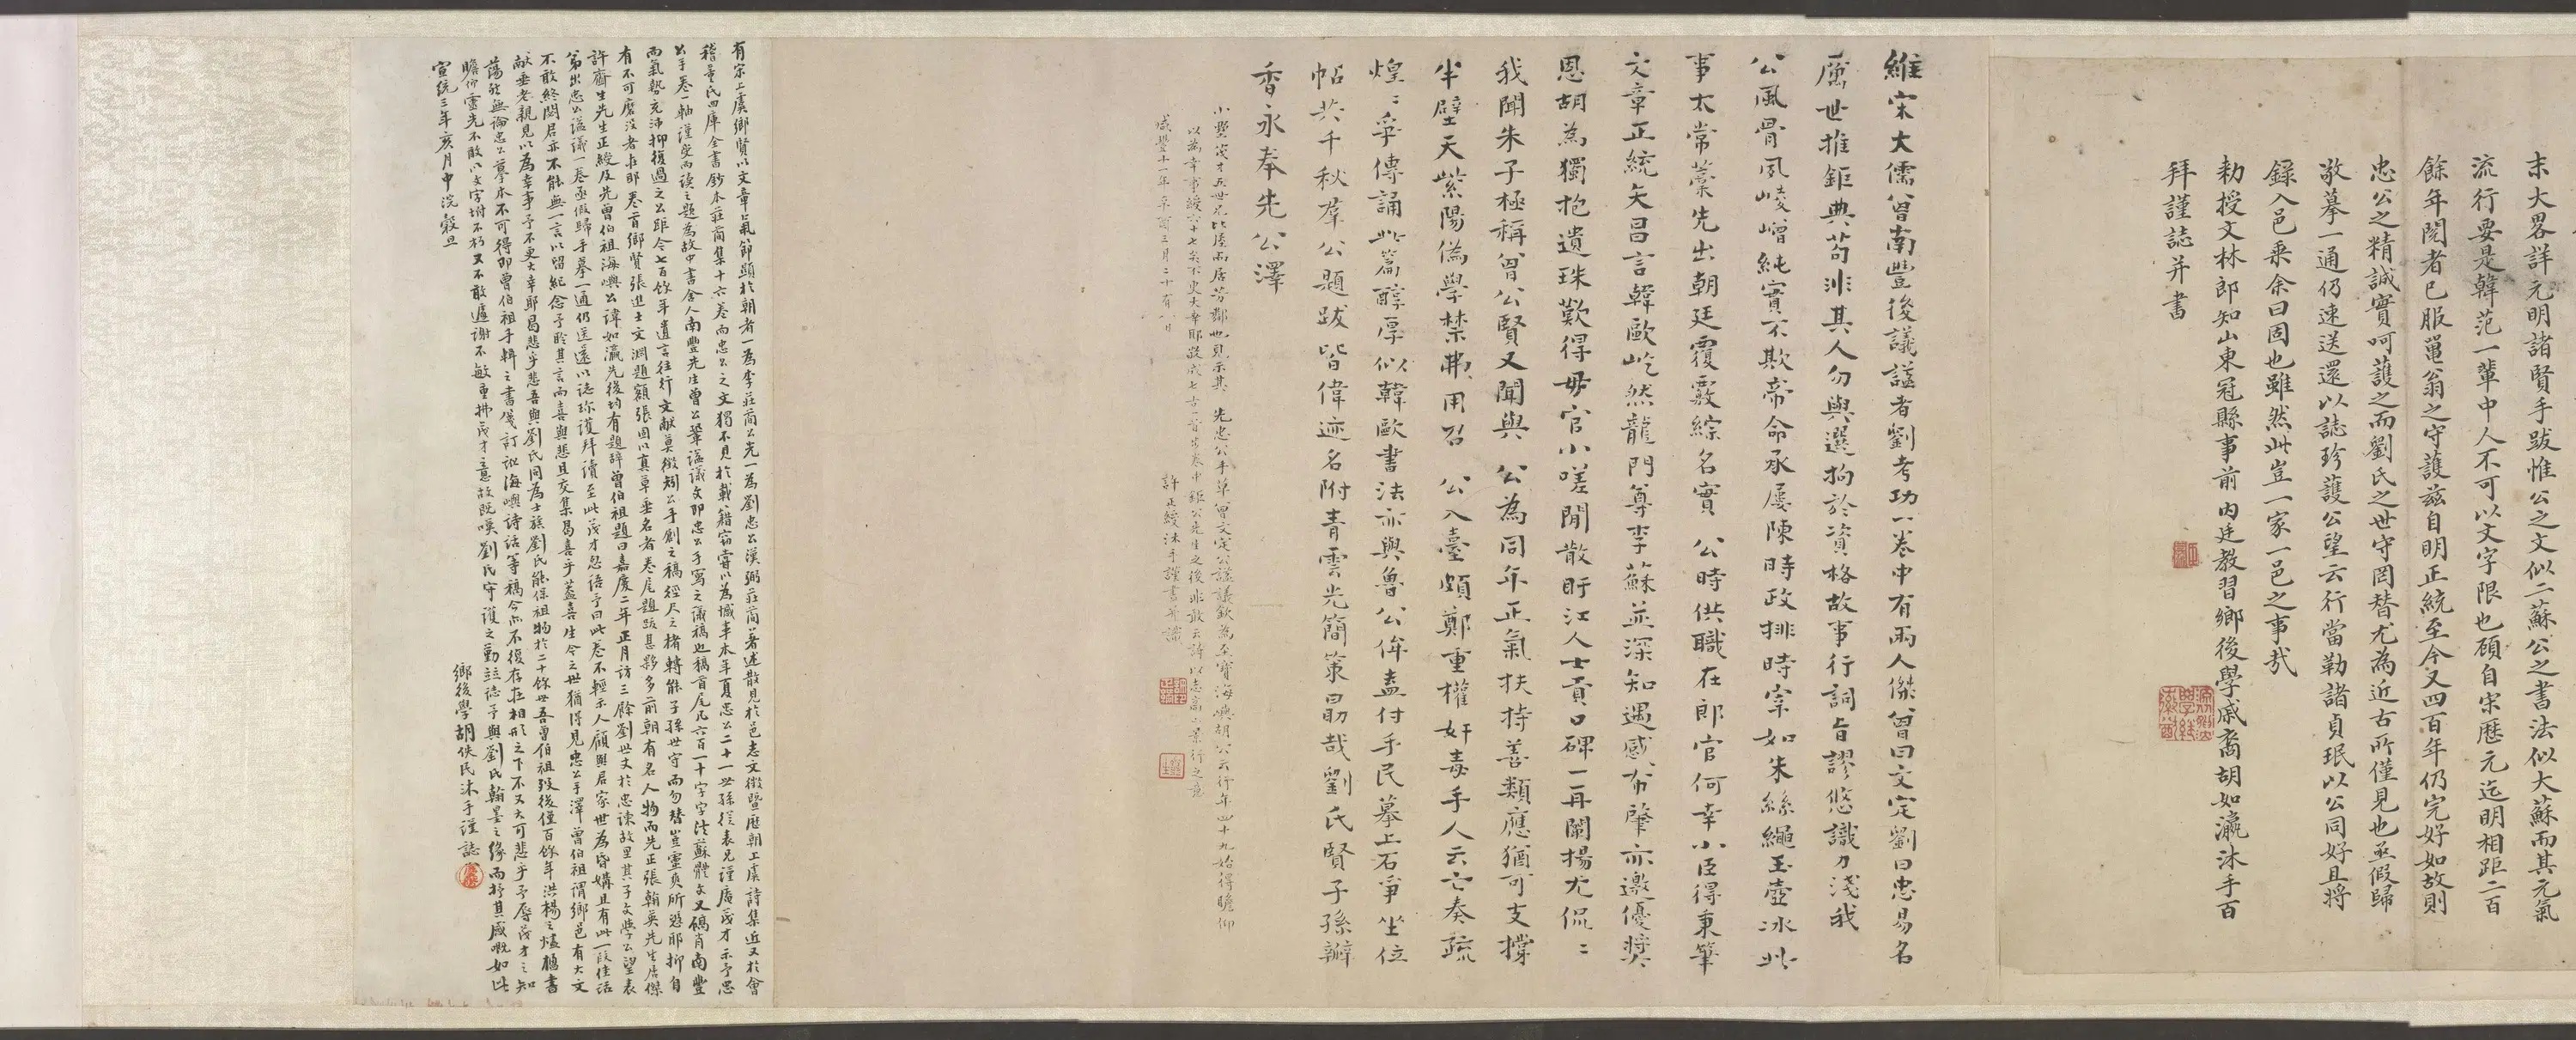 末大畧詳元明諸賢手跋惟公之文似二蘇公之書法似大蘇而其元氣
流行要是韓范一輩中人不可以文字限也顧自宋歷元迄明相距二百
餘年閱者已服䍐翁之守護茲自明正統至今又四百年仍完好如故則
忠公之精誠實呵護之而劉氏之世守罔替尤為近古所僅見也亟假歸
敬摹一通仍速送還以誌珍護公望云行當勒諸貞珉以公同好且將
錄入邑乘余曰固也雖然此豈一家一邑之事哉
勅授文林郎知山東冠縣事前內廷教習鄉後學戚裔胡如瀛沐手百
拜謹誌并書
維宋大儒曾南豐後議謚者劉考功一卷中有兩人傑曾曰文定劉曰忠易名
厲世推鉅典苟非其人勿與選拘於資格故事行詞旨謬悠識力淺我
公風骨夙崚嶒純實不欺帝命承屢陳時政排時宰如朱絲繩玉壺冰此
事太常藁先出朝廷覆覈綜名實 公時供職在郎官何幸小臣得秉筆
文章正統矢昌言韓歐屹然龍門尊李蘇並深知遇感布肇亦邀優獎
恩胡為獨抱遺珠歎得毋官小嗟閒散盱江人士貢口碑一再闡揚尤侃〻
我聞朱子極稱曾公賢又聞與 公為同年正氣扶持善類應猶可支撐
半壁天紫陽偽學禁弗用召 公入臺頗鄭重權奸毒手人云亡奏疏
煌〻爭傳誦此篇醇厚似韓歐書法亦與魯公侔盍付手民摹上石爭坐位
帖共千秋羣公題跋皆偉迹名附青雲光簡策勗哉劉氏賢子孫瓣
香永奉先公澤
小豐茂才五世兄比屋而居芳鄰也見示其 先忠公手草曾文定公謚議欽為至寶海嶼胡公云行年四十九始得瞻仰
以為幸事綬六十七矣不更大幸耶敬成七古一首步卷中鉅公先生之後非敢云詩以志高山景行之意
咸豐十一年辛酉三月二十有八日 許正綬沐手謹書并識
有宋上虞鄉賢以文章氣節顯於朝者一為李莊簡公光一為劉忠公漢弼莊簡著述散見於邑志文徵暨歷朝上虞詩集近又於會
稽董氏四庫全書鈔本莊簡集十六卷而忠公之文獨不見於載籍竊嘗以為憾事本年夏忠公二十一世孫從表兄謹廣茂才示予忠
公手卷一軸謹受而讀之題為故中書舍人南豐先生曾公鞏謚議文即忠公手寫之議稿也稿首尾凡六百一十字字法蘇體文又碻肖南豐
而氣勢充沛抑復過之公距今七百餘年遺言往行文獻莫徵矧公手創之稿經尺之楮轉能子孫世守而勿替豈靈爽所憑耶抑自
有不可磨沒者在耶卷首鄉賢張進士文淵題額張固以真草垂名者卷尾題跋甚夥多前朝有名人物而先正張翰英先生居傑
許齋生先生正綬及先曾伯祖海嶼公諱如瀛先後均有題辭曾伯祖題曰嘉慶二年正月訪三餘劉世丈於忠諫故里其子文學公望表
弟出忠公謚議一卷亟假歸手摹一通仍送還以誌珍護拜讀至此茂才忽語予曰此卷不輕示人顧與君家世為昏媾且有此一段佳話
不敢終閟君亦不能無一言以留紀念予聆其言而喜與悲且交集曷喜乎蓋喜生今之世猶得見忠公手澤曾伯祖謂鄉邑有大文
獻垂老親見以為幸事予不更大幸耶曷悲乎悲吾與劉氏同為士族劉氏能保祖物於二十餘世吾曾伯祖歿後僅百餘年洪楊之燼楹書
蕩然無論忠公摹本不可得即曾伯祖手輯之書幾訂訛海嶼詩話等稿今亦不復存在相形之下不又大可悲乎予辱茂才之知
瞻仰靈光不敢以文字坿不朽又不敢遽謝不敏重拂茂才之意故既嘆劉氏守護之勤並誌予與劉氏翰墨之緣而抒其感嘅如此
宣統三年亥月中浣穀旦 鄉後學胡佚民沐手謹誌